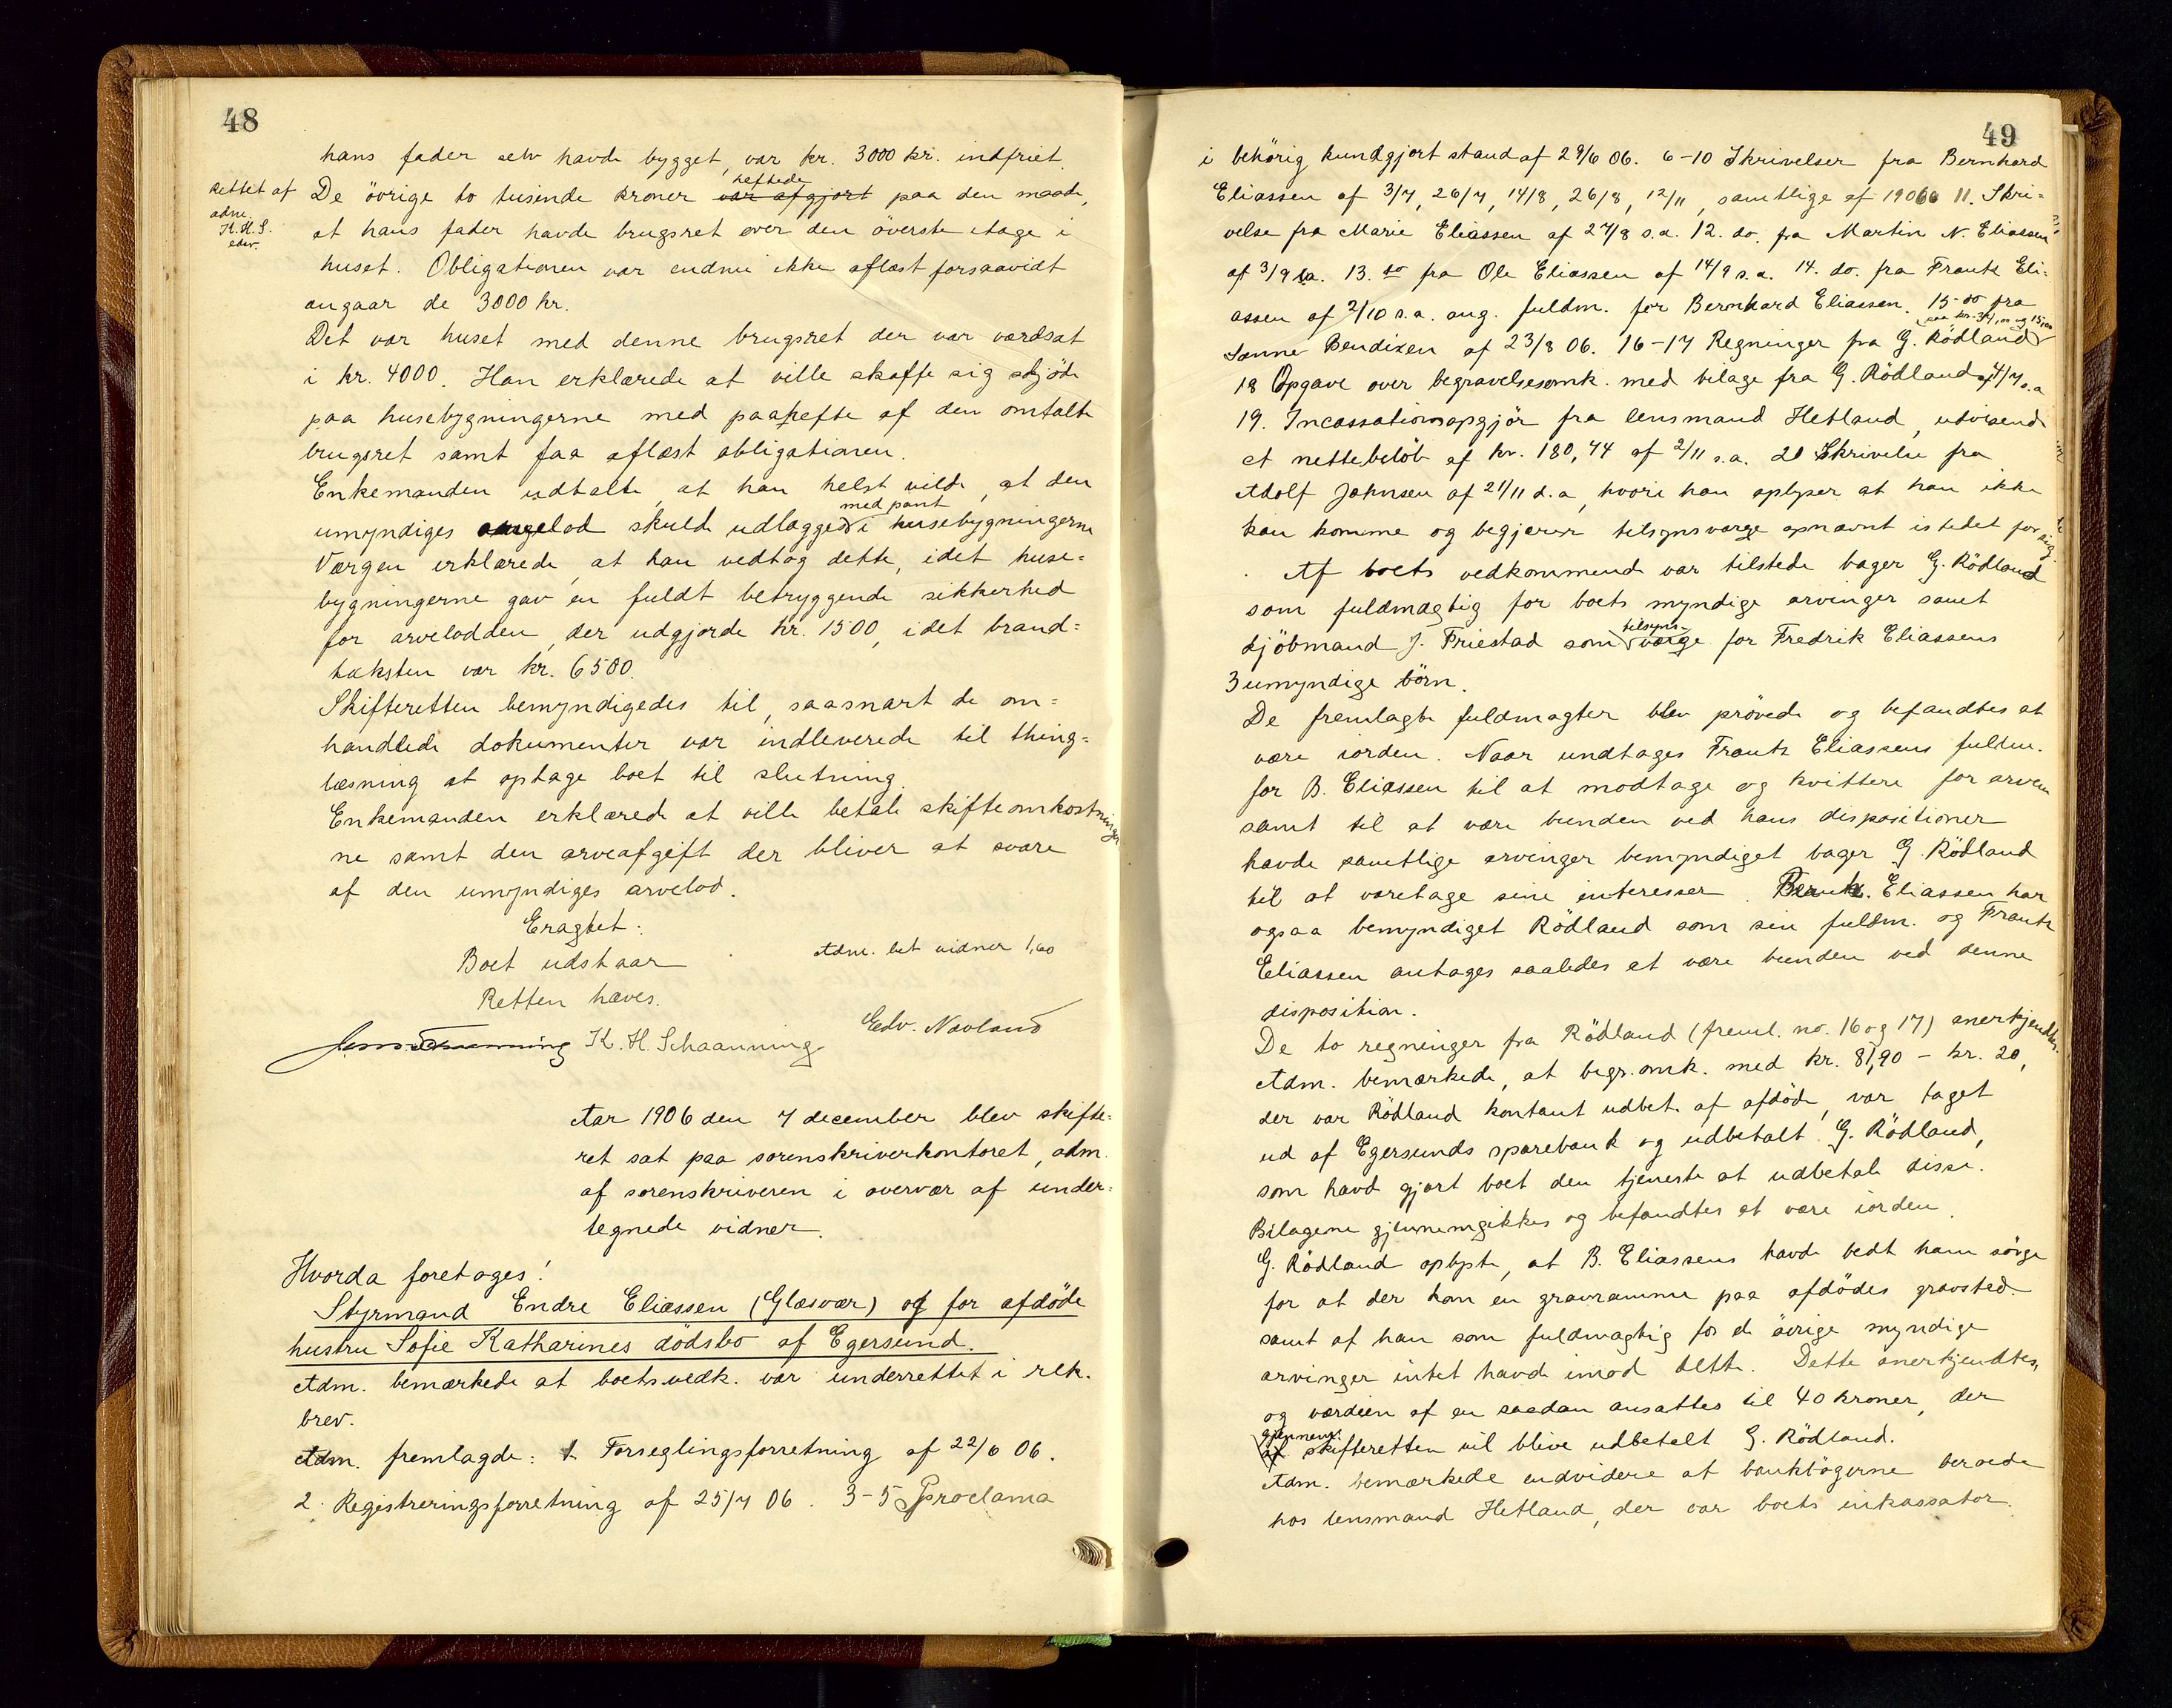 48
hans fader selv havde bygget, var kr. 3000 kr. indfriet.
Rettet af
adm.
K.H.S.
edv.
heftede
De övrige to tusinde kroner var afgjort paa den maade,
at hans fader havde brugsret over den överste etage i
huset. Obligationen var endnu ikke aflæst forsaavidt
angaar de 3000 kr.
Det var huset med denne brugsret der var værdsat
i kr. 4000. Han erklærede at ville skaffe sig skjöde
paa husebygningerne med paahefte af den omtalte
brugsret samt faa aflæst obligationen.
Enkemanden udtalte, at han helst vilde, at den
med pant
umyndiges lod skulde udlægges i husebygningerne
Værgen erklærede, at han vedtog dette, idet huse=
bygningerne gav en fuldt betryggende sikkerhed
for arvelodden, der udgjorde kr. 1500, idet brand=
taksten var kr. 6500.
Skifteretten bemyndigedes til, saasnart de om=
handlede dokumenter var indleverede til thing=
læsning at optage boet til slutning.
Enkemanden erklærede at ville betale skifteomkostninger
ne samt den arveafgift der bliver at svare
af den umyndiges arvelod.
Eragtet:
Boet udstaar
Adm. bet vidner 1,60
Retten hæves.
K. H. Schaanning
Edv. Navland
Aar 1906 den 7 december blev skifte=
ret sat paa sorenskriverkontoret, adm.
af sorenskriveren i overvær af under=
tegnede vidner.
Hvorda foretages!
Styrmand Endre Eliassen (Glasvær) og for afdöde
hustru Sofie Katharines dödsbo af Egersund.
Adm. bemærkede at boets vedk. var underrettet i rek.
brev.
Adm. fremlagde: 1 Forseglingsforretning af 22/6 06.
2. Registreringsforretning af 25/7 06. 3-5 Proclama
49
i behörig kundgjort stand af 29/6 06. 6-10 Skrivelser fra Bernhard
Eliassen af 3/7, 26/7, 14/8, 26/8, 12/11, samtlige af 1906 11. Skri=
velse fra Marie Eliassen af 27/8 s.a. 12. do. fra Martin N. Eliassen
af 3/9 s.a. 13. do fra Ole Eliassen af 14/9 s.a. 14. do. fra Frantz Eli=
assen af 2/10 s.a. ang. fuldm. for Bernhard Eliassen. 15 do fra
Sanne Bendixen af 23/8 06. 16-17 Regninger fra G. Rödland
18 Opgave over begravelsesomk. med bilage fra G. Rödland af 4/7 s.a
19. Incassationsopgjör fra lensmand Hetland, udvisende
et nettobelöb af kr. 180,44 af 2/11 s.a. 20 Skrivelse fra
Adolf Johnsen af 21/11 d.a, hvori han oplyser at han ikke
kan komme og begjærer tilsynsværge opnævnt istedet for sig.
Af boets vedkommende var tilstede bager G. Rödland
som fuldmægtig for boets myndige arvinger samt
tilsyns-
kjöbmand J. Friestad som værge for Fredrik Eliassens
3 umyndige börn.
De fremlagte fuldmagter blev prövede og befandtes at
være iorden. Naar undtages Frantz Eliassens fuldm.
for B. Eliassen til at modtage og kvittere for arven
samt til at være bunden ved hans dispositioner
havde samtlige arvinger bemyndiget bager G. Rödland
til at varetage sine interesser. Bernh. Eliassen har
ogsaa bemyndiget Rödland som sin fuldm. og Frantz
Eliassen antages saaledes at være bunden ved denne
disposition.
De to regninger fra Rödland (freml. no. 16 og 17) anerkjendtes.
Adm. bemærkede, at begr.omk. med kr. 81,90 - kr. 20,
der var Rödland kontant udbet. af afdöde, var taget
ud af Egersunds sparebank og udbetalt G. Rödland,
som havde gjort boet den tjeneste at udbetale disse.
Bilagene gjennemgikkes og befandtes at være iorden.
G. Rödland oplyste, at B. Eliassens havde bedt ham sörge
for at der kom en gravramme paa afdödes gravsted
samt at han som fuldmægtig for de övrige myndige
arvinger intet havde imod dette. Dette anerkjendtes,
og værdien af en saadan ansattes til 40 kroner, der
gjennem
af skifteretten vil blive udbetalt G. Rödland.
Adm. bemærkede endvidere at bankbögerne beroede
hos lensmand Hetland, der var boets inkassator.